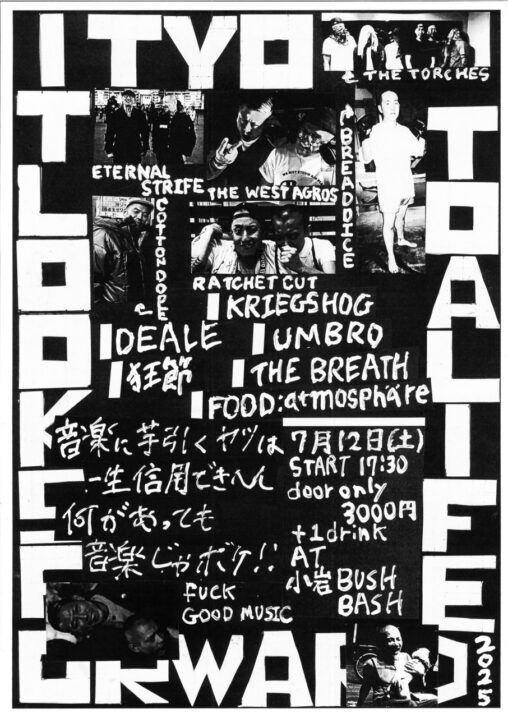 ITYO
TLOOK
TOALIFE
THE TORCHES
ETERNAL
STRIFE
THE WEST AGROS
BREADDICE
COTTONDOPE
RATCHET CUT
KRIEGSHOG
DEALE
UMBRO
狂節
THE BREATH
FOOD:atmosphäre
音楽に芋引くヤツは
一生信用できへん
何があっても
音楽じゃボケ!!
fuck
GOOD MUSIC
7月12日(土)
START 17:30
door only
3000円
+1drink
AT
小岩BUSH
BASH
WA
2025